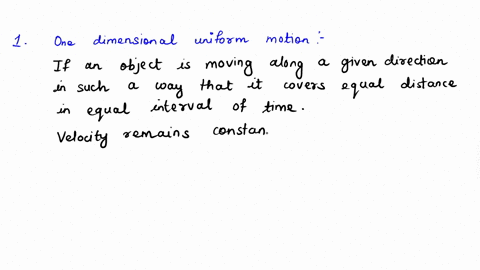 1. One dimensional uniform motion :-
If an object is moving along a given direction
in such a way that it covers equal distance
in equal interval of time.
Velocity remains constan